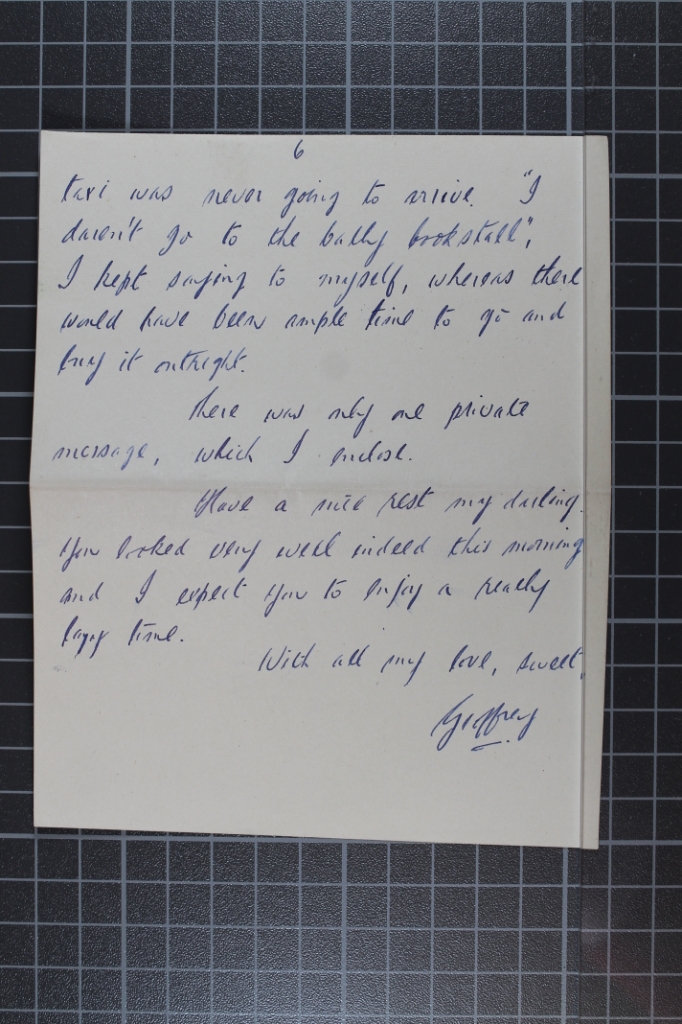 6
taxi was never going to arrive. "I
daren't go to the bally bookstall",
I kept saying to myself, whereas there
would have been ample time to go and
buy it outright.
There was only one private
message, which I enclose.
Have a nice rest my darling.
You looked very well indeed this morning
and I expect you to enjoy a really
lazy time.
With all my love, sweet,
Geoffrey